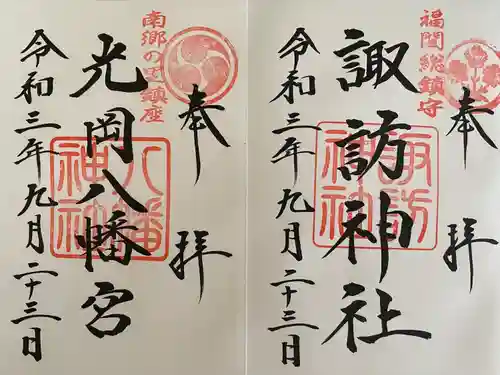 福間総鎮守
奉拝
諏訪神社
諏訪神社
令和三年九月二十三日
南郷の鎮座
奉拝
光岡八幡宮
八幡神社
令和三年九月二十三日